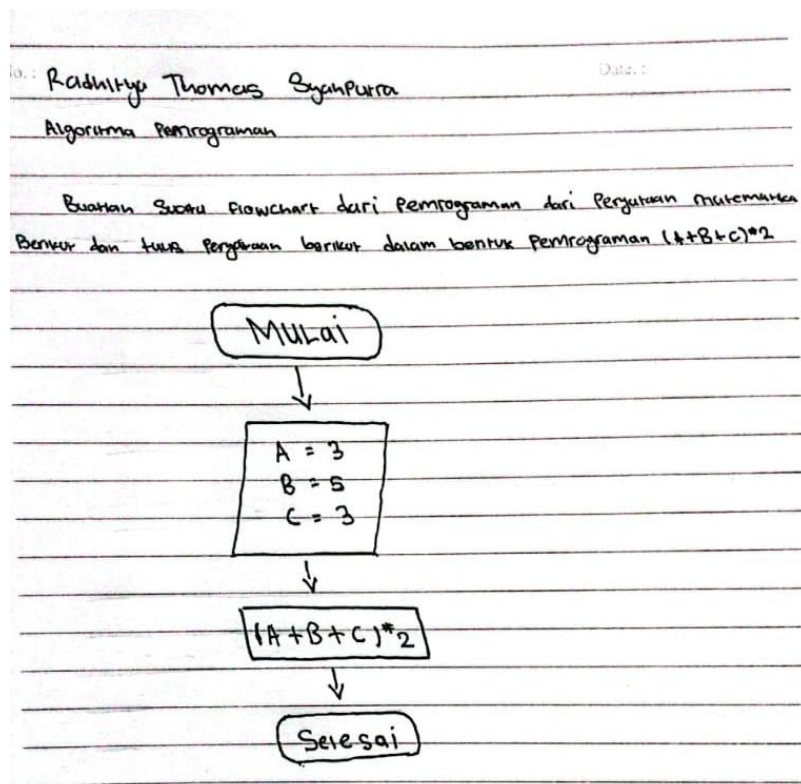 o. :
Date. :
Radhitya Thomas Syahputra
Algoritma Pemrograman
Buatlan Suatu Flowchart dari Pemrograman dari Peryataan matematika
Berikut dan tulis Peryataan berikut dalam bentuk Pemrograman (A+B+C)*2
MULai
A = 3
B = 5
C = 3
(A+B+C)*2
Selesai